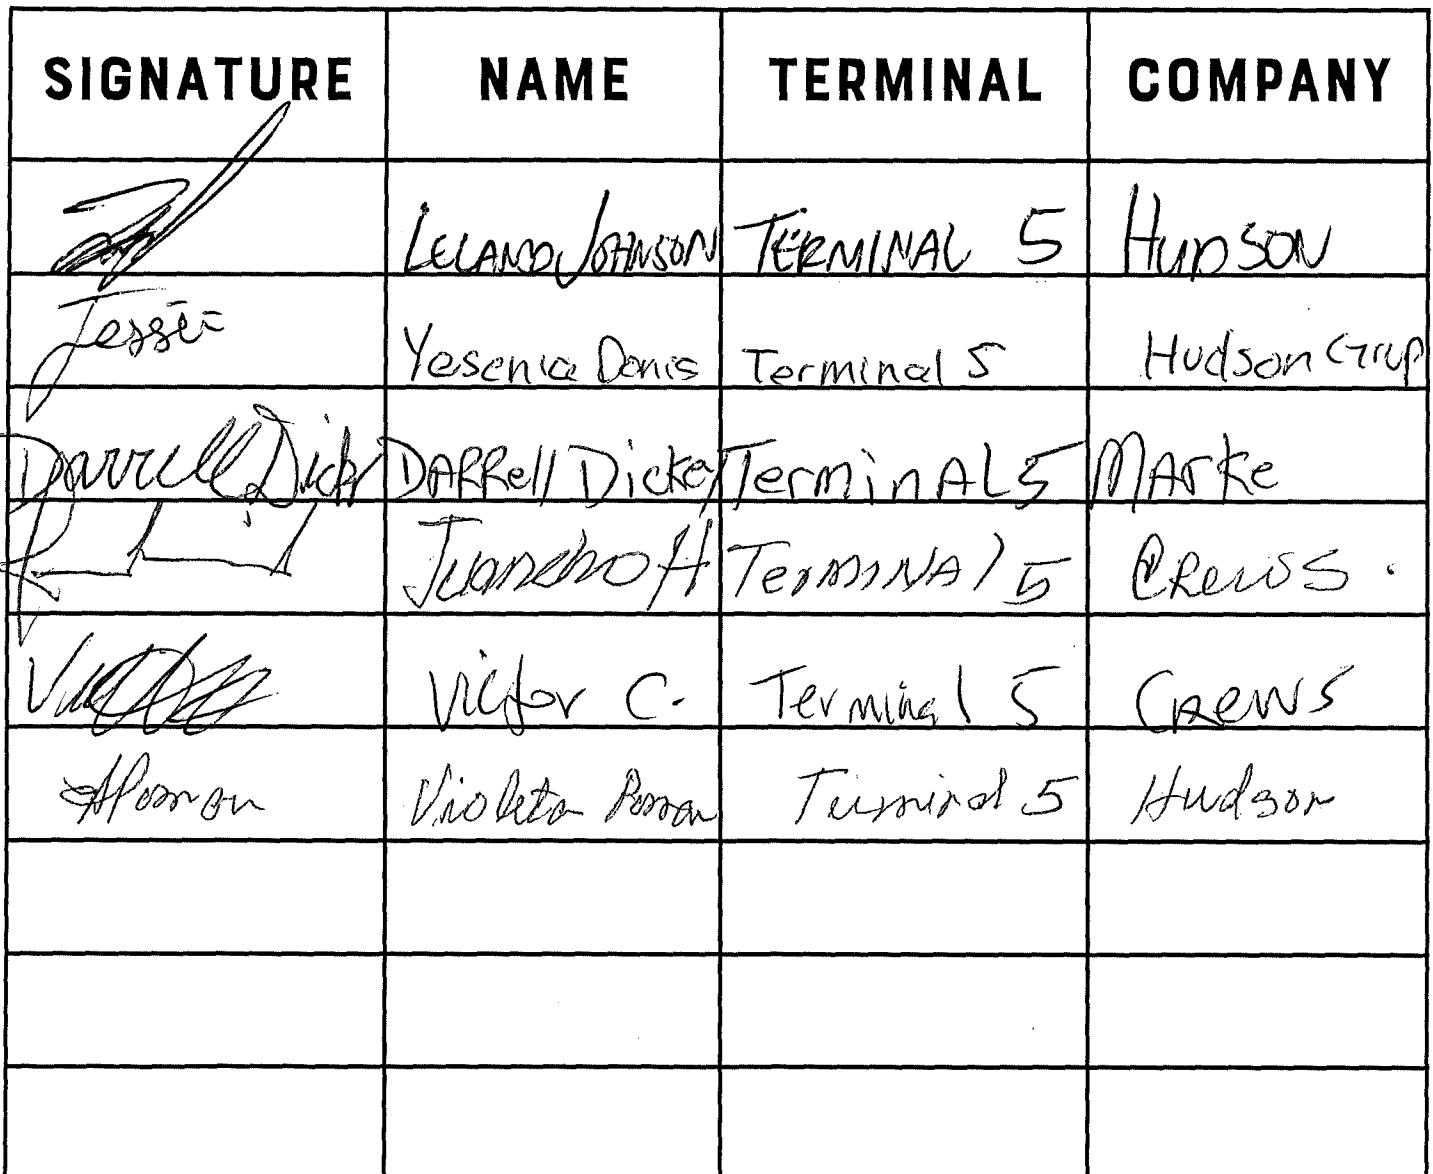 SIGNATURE NAME TERMINAL COMPANY
LELAND JOHNSON TERMINAL 5 HUDSON
Jessie Yesenia Donis Terminal 5 Hudson Grup
Darrell Dick DARRell Dickey TerminAL 5 MArke
Juancho H TerMINAl 5 CRewS.
Victor C. Terminal 5 CRewS
Violeta Roman Terminal 5 Hudson